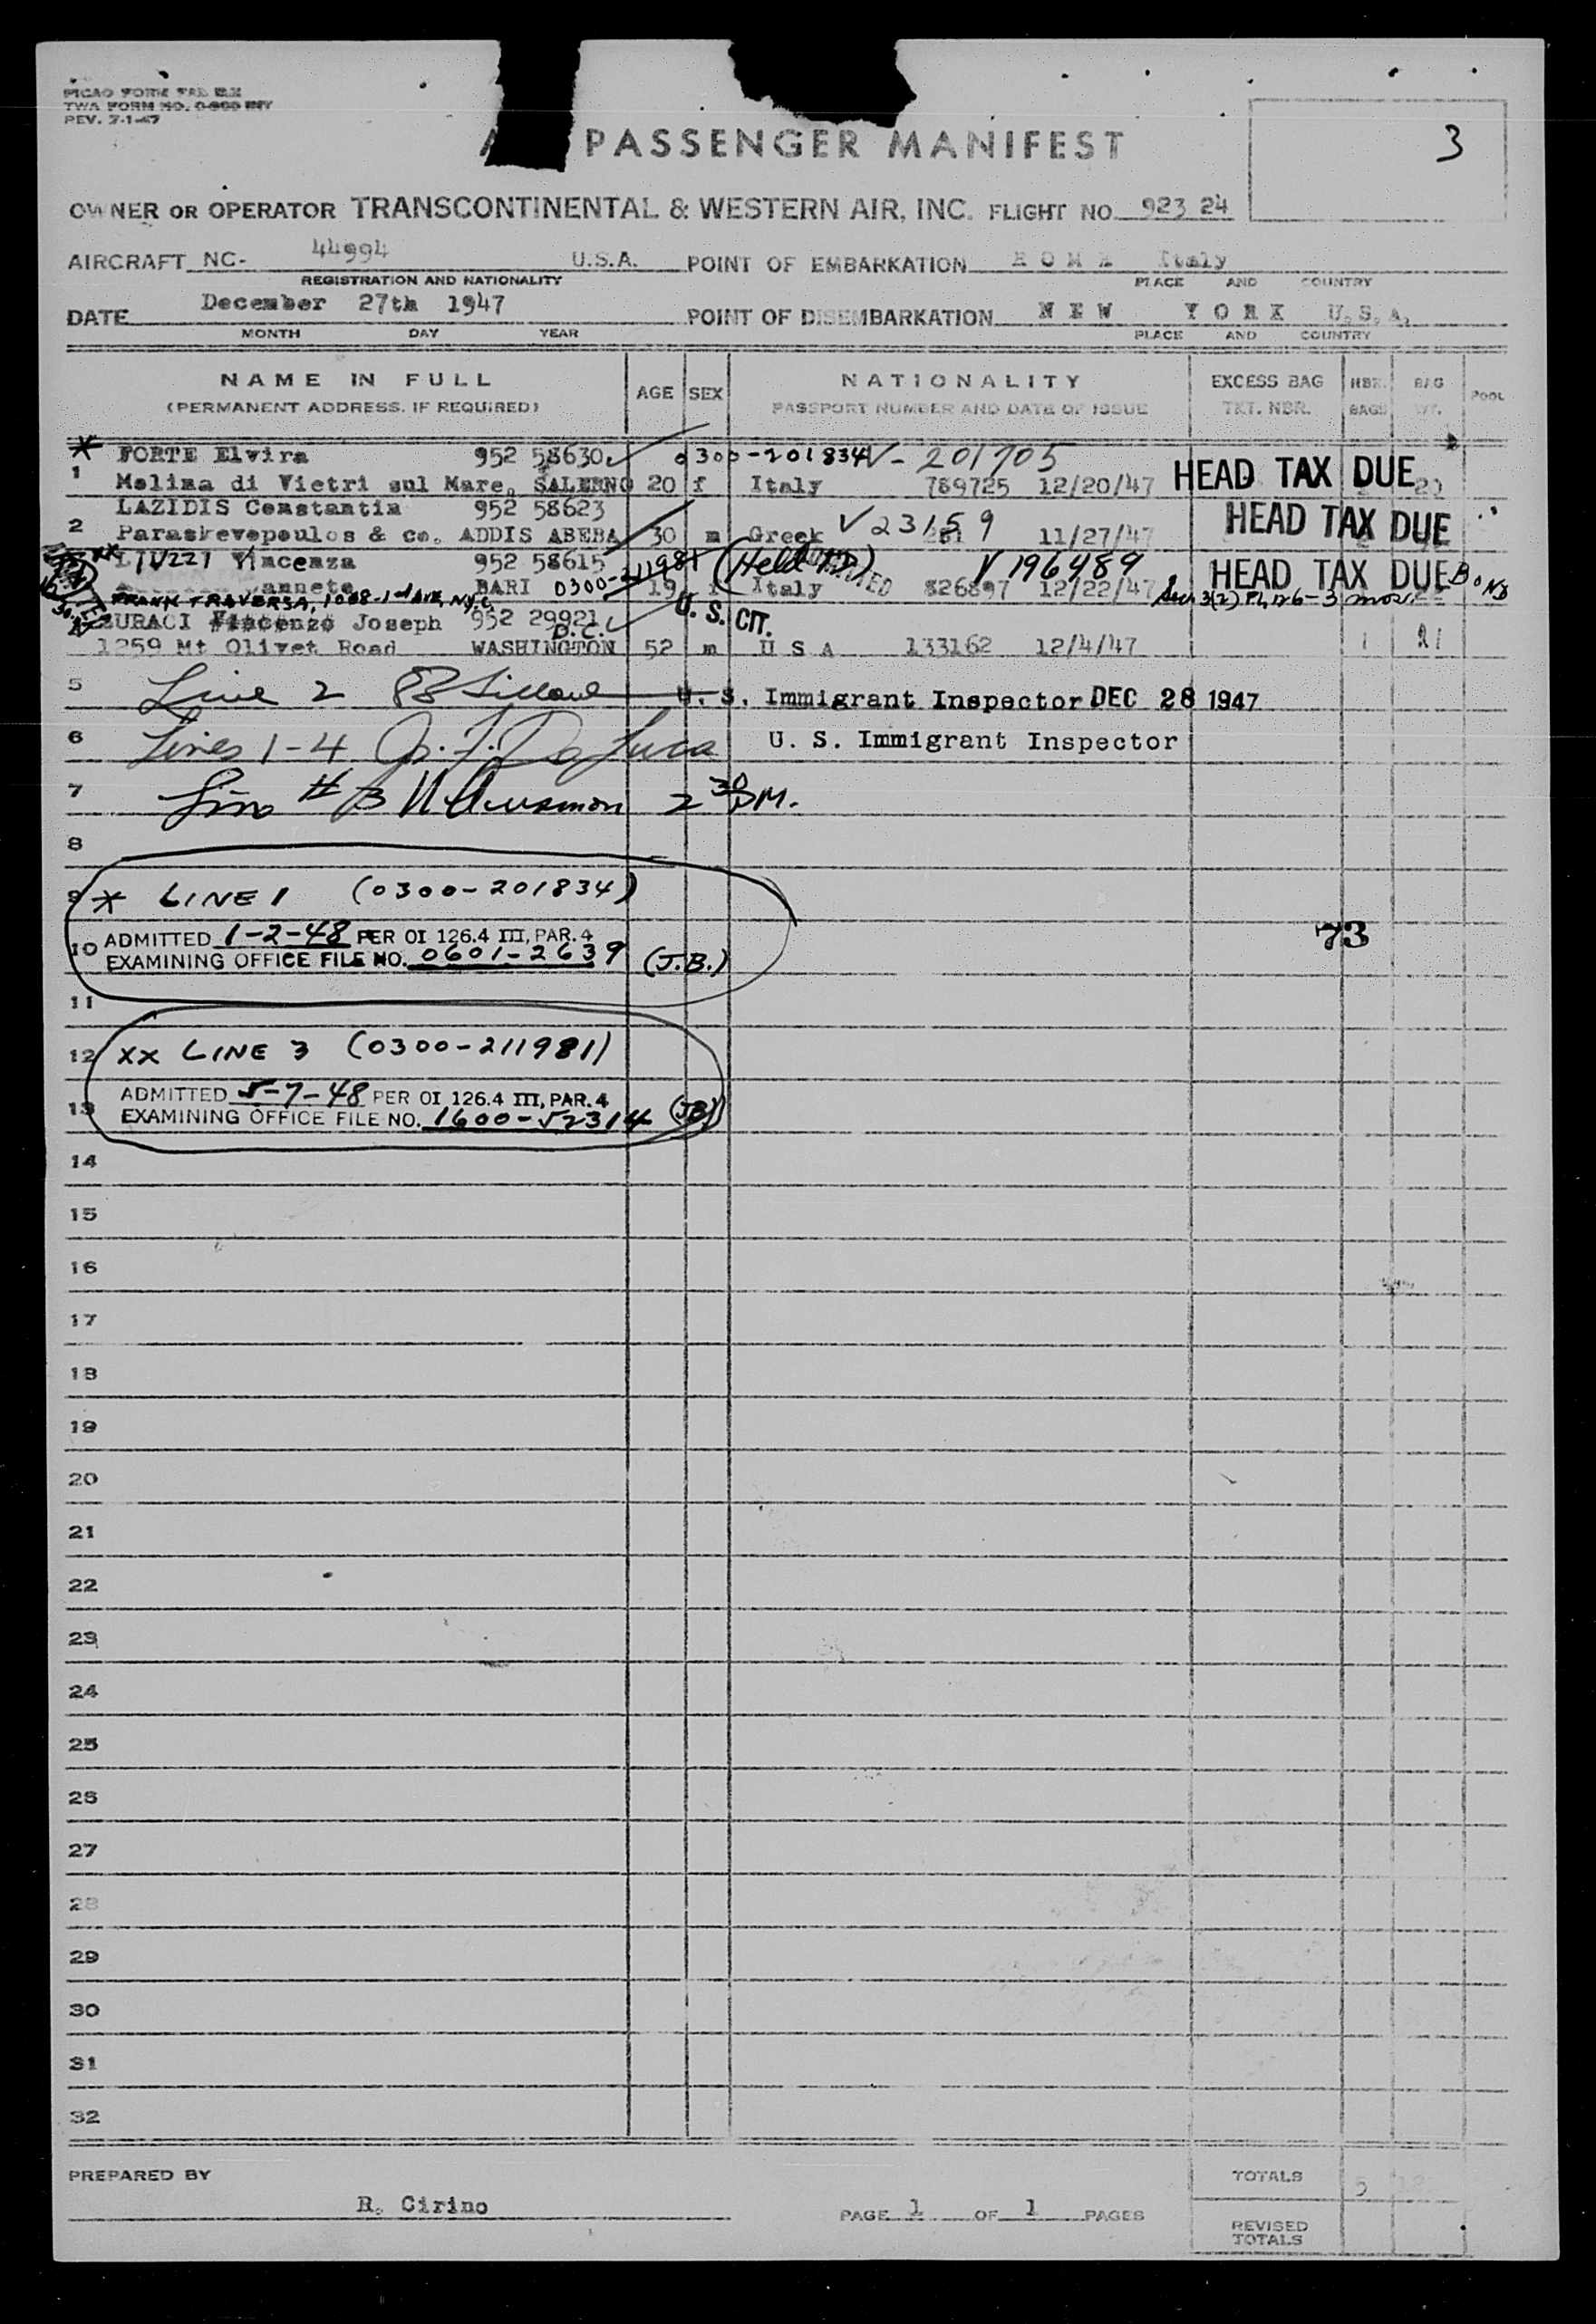 REV. 7-1-47
3
PASSENGER MANIFEST
OWNER OR OPERATOR TRANSCONTINENTAL & WESTERN AIR, INC. FLIGHT NO. 923 24
AIRCRAFT NC- 44994 U.S.A. POINT OF EMBARKATION R O M E Italy
REGISTRATION AND NATIONALITY PLACE AND COUNTRY
DATE December 27th 1947 POINT OF DISEMBARKATION N E W Y O R K U.S.A.
MONTH DAY YEAR PLACE AND COUNTRY
NAME IN FULL AGE SEX NATIONALITY EXCESS BAG NBR. BAG POOL
(PERMANENT ADDRESS. IF REQUIRED) PASSPORT NUMBER AND DATE OF ISSUE TKT. NBR. BAGS WT.
* FORTE Elvira 952 58630 0300-201834 V-201705
1 Molina di Vietri sul Mare, SALERNO 20 f Italy 789725 12/20/47 HEAD TAX DUE 20
LAZIDIS Constantin 952 58623 V 23159
2 Paraskevopoulos & co. ADDIS ABEBA 30 m Greek 11/27/47 HEAD TAX DUE
xx LIUZZI Vincenza 952 58615 0300-211981 (Held) V 196489
BARI 19 f Italy 826897 12/22/47 HEAD TAX DUE Bond
FRANK TRAVERSA, 1068-1st AVE, N.Y.C. Sec 3(2) 3 mos.
SURACI Vincenzo Joseph 952 29921 U.S. CIT.
1259 Mt Olivet Road WASHINGTON D.C. 52 m U S A 133162 12/4/47 1 21
5 Line 2 U. S. Immigrant Inspector DEC 28 1947
6 Lines 1-4 U. S. Immigrant Inspector
7 Line #3 2 30 PM.
8
9 * LINE 1 (0300-201834)
10 ADMITTED 1-2-48 PER OI 126.4 III, PAR. 4
EXAMINING OFFICE FILE NO. 0601-2639 (J.B.)
73
11
12 XX LINE 3 (0300-211981)
13 ADMITTED 5-7-48 PER OI 126.4 III, PAR. 4
EXAMINING OFFICE FILE NO. 1600-52314 (JB)
14
15
16
17
18
19
20
21
22
23
24
25
26
27
28
29
30
31
32
PREPARED BY TOTALS 5
R. Cirino PAGE 1 OF 1 PAGES
REVISED
TOTALS